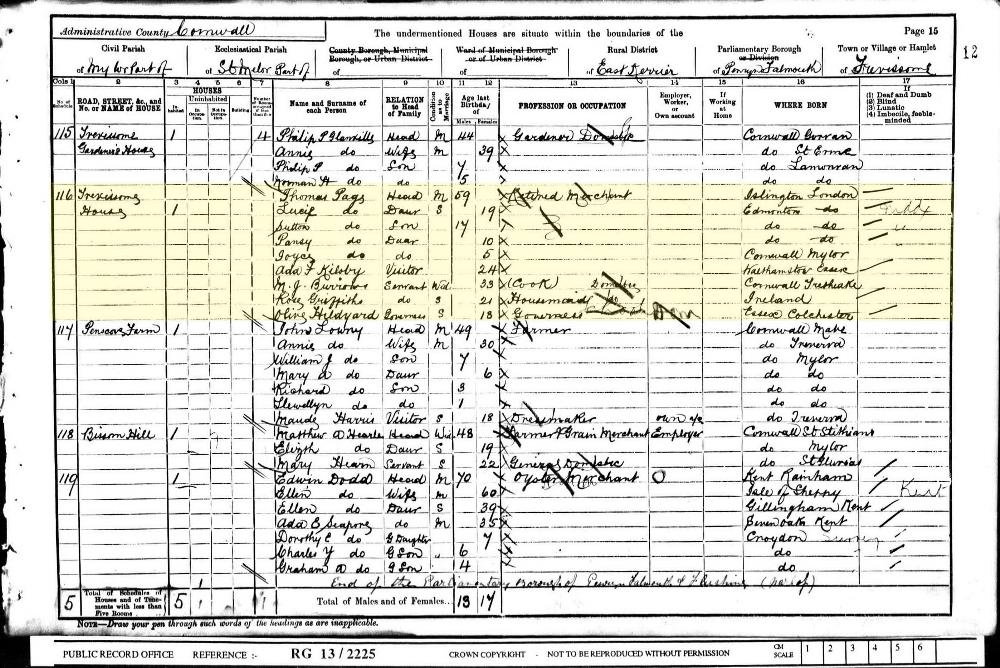 Administrative County Cornwall The undermentioned Houses are situate within the boundaries of the Page 15
12
Civil Parish Ecclesiastical Parish County Borough, Municipal Borough, or Urban District Ward of Municipal Borough or of Urban District Rural District Parliamentary Borough or Division Town or Village or Hamlet
of Mylor Part of of St Mylor Part of of of of East Kerrier of Penryn Falmouth of Trevissome
Cols 1 2 3 4 5 6 7 8 9 10 11 12 13 14 15 16 17
No. of Schedule ROAD, STREET, &c., and No. or NAME of HOUSE HOUSES Inhabited Uninhabited In Occupation Not in Occupation Building Name and Surname of each Person RELATION to Head of Family Condition as to Marriage Age last Birthday of Males Females PROFESSION OR OCCUPATION Employer, Worker, or Own account If Working at Home WHERE BORN If (1) Deaf and Dumb (2) Blind (3) Lunatic (4) Imbecile, feeble-minded
115 Trevissome 1 4 Philip P Glanville Head M 44 Gardener Domestic Cornwall Gorran
Gardener's House Annie do Wife M 39 do St Erme
Philip P do Son 7 do Lamorran
Norman H do do 5 do do
116 Trevissome Thomas Page Head M 59 Retired Merchant Islington London
House 1 Lucie do Daur S 19 Edmonton do
Sutton do Son 17 do do
Pansy do Daur 10 do do
Joyce do do 5 Cornwall Mylor
Ada F Kilsby Visitor 24 Walthamstow Essex
M. J. Burrows Servant Wd 33 Cook Domestic Cornwall
Rose Griffiths do S 21 Housemaid do Ireland
Olive Hildyard Governess S 18 Governess Essex Colchester
117 Penscove Farm 1 John Lowry Head M 49 Farmer Cornwall Mabe
Annie do Wife M 30 do
William J do Son 7 do Mylor
Mary A do Daur 6 do do
Richard do Son 3 do do
Llewellyn do do 1 do do
Maude Harris Visitor S 18 Dressmaker own a/c do
118 Bissom Hill 1 Matthew A Hearle Head Wid 48 Farmer & Grain Merchant Employer Cornwall St Stithians
Elizth do Daur S 19 do Mylor
Mary Hearn Servant S 22 General Domestic do St Gluvias
119 1 Edwin Dodd Head M 70 Oyster Merchant O Kent Rainham
Ellen do Wife M 60 Isle of Sheppy Kent
Ellen do Daur S 39 Gillingham Kent
Ada E do M 35 Seven Oaks Kent
Dorothy E do G Daughter 7 Croydon Surrey
Charles Y do G Son 6 do
Graham A do G Son 4 do
End of the Parliamentary Borough of Penryn Falmouth & Flushing (part of)
5 Total of Schedules of Houses and of Tenements with less than Five Rooms 5 1 1 Total of Males and of Females... 13 17
NOTE—Draw your pen through such words of the headings as are inapplicable.
PUBLIC RECORD OFFICE REFERENCE :- RG 13 / 2225 CROWN COPYRIGHT - NOT TO BE REPRODUCED WITHOUT PERMISSION CM SCALE 1 2 3 4 5 6